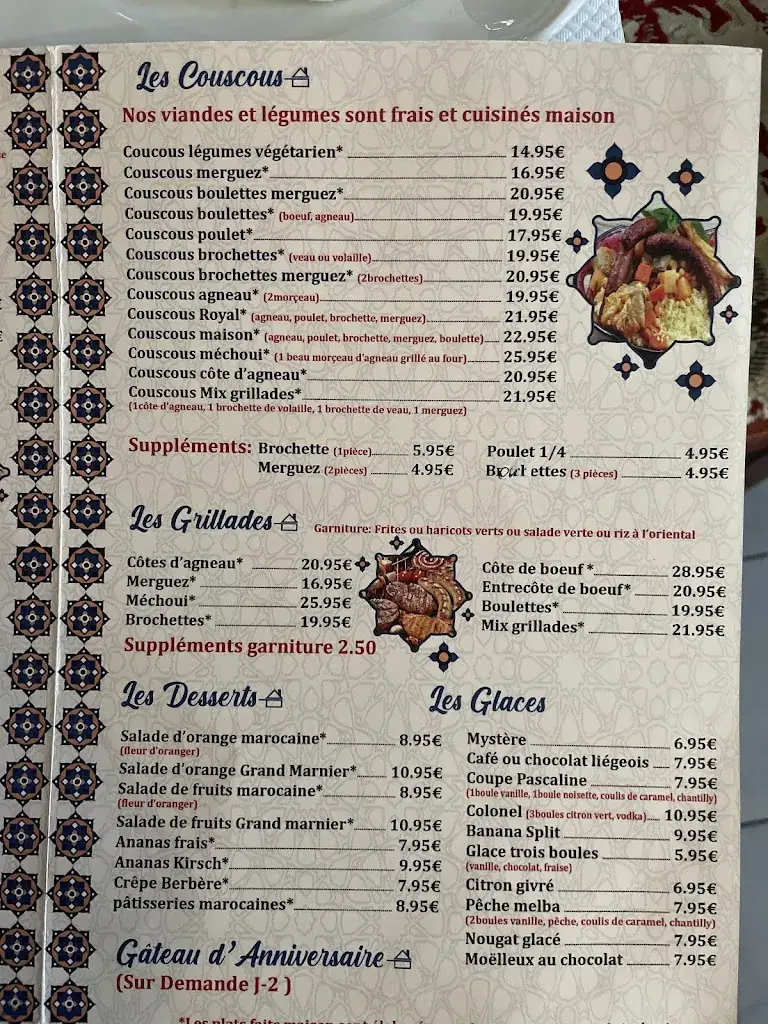 Les Couscous
Nos viandes et légumes sont frais et cuisinés maison
Coucous légumes végétarien* 14.95€
Couscous merguez* 16.95€
Couscous boulettes merguez* 20.95€
Couscous boulettes* (boeuf, agneau) 19.95€
Couscous poulet* 17.95€
Couscous brochettes* (veau ou volaille) 19.95€
Couscous brochettes merguez* (2brochettes) 20.95€
Couscous agneau* (2morçeau) 19.95€
Couscous Royal* (agneau, poulet, brochette, merguez) 21.95€
Couscous maison* (agneau, poulet, brochette, merguez, boulette) 22.95€
Couscous méchoui* (1 beau morçeau d'agneau grillé au four) 25.95€
Couscous côte d'agneau* 20.95€
Couscous Mix grillades* 21.95€
(1côte d'agneau, 1 brochette de volaille, 1 brochette de veau, 1 merguez)
Suppléments: Brochette (1pièce) 5.95€
Merguez (2pièces) 4.95€
Poulet 1/4 4.95€
(3 pièces) 4.95€
Les Grillades
Garniture: Frites ou haricots verts ou salade verte ou riz à l'oriental
Côtes d'agneau* 20.95€
Merguez* 16.95€
Méchoui* 25.95€
Brochettes* 19.95€
Côte de boeuf* 28.95€
Entrecôte de boeuf* 20.95€
Boulettes* 19.95€
Mix grillades* 21.95€
Suppléments garniture 2.50
Les Desserts
Salade d'orange marocaine* 8.95€
(fleur d'oranger)
Salade d'orange Grand Marnier* 10.95€
Salade de fruits marocaine* 8.95€
(fleur d'oranger)
Salade de fruits Grand marnier* 10.95€
Ananas frais* 7.95€
Ananas Kirsch* 9.95€
Crêpe Berbère* 7.95€
pâtisseries marocaines* 8.95€
Les Glaces
Mystère 6.95€
Café ou chocolat liégeois 7.95€
Coupe Pascaline 7.95€
(1boule vanille, 1boule noisette, coulis de caramel, chantilly)
Colonel (3boules citron vert, vodka) 10.95€
Banana Split 9.95€
Glace trois boules 5.95€
(vanille, chocolat, fraise)
Citron givré 6.95€
Pêche melba 7.95€
(2boules vanille, pêche, coulis de caramel, chantilly)
Nougat glacé 7.95€
Moëlleux au chocolat 7.95€
Gâteau d'Anniversaire
(Sur Demande J-2 )